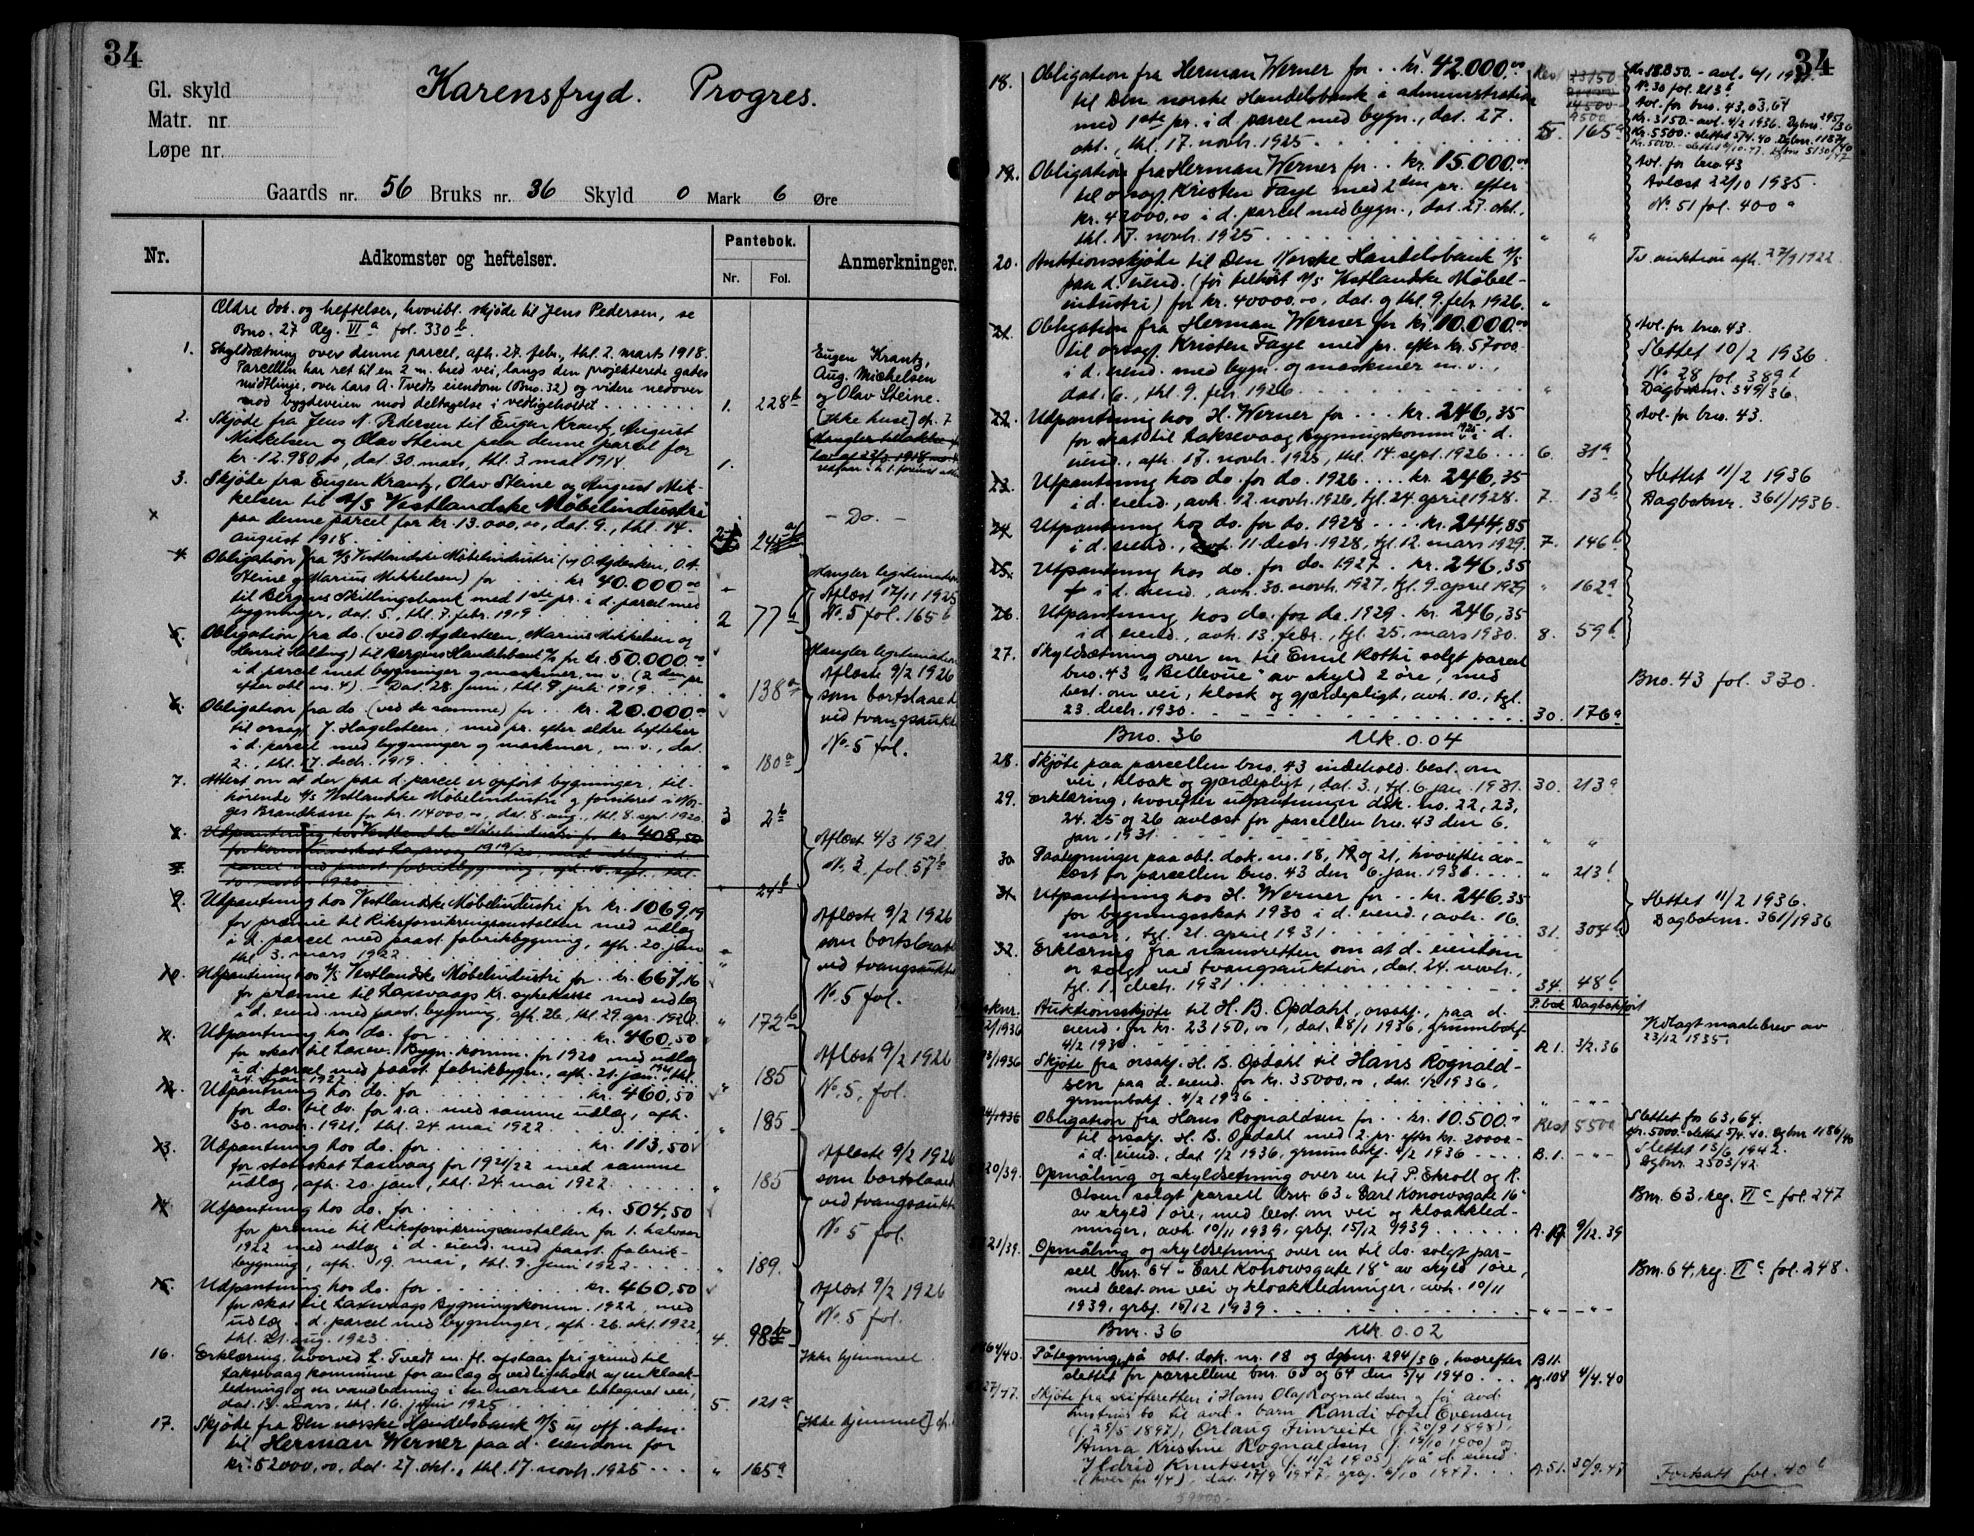 34
Karensfryd. Progres.
Gl. skyld
Matr. nr
Løpe nr.
Gaards nr. 56 Bruks nr. 36 Skyld 0 Mark 6 Øre
Nr. Adkomster og heftelser. Pantebok. Nr. Fol. Anmerkninger.
Ældre dok. og heftelser, hvoribl. skjøde til Jens Pedersen, se
Bno. 27 Reg. VI a fol. 330 b.
1. Skyldsætning over denne parcel, afh. 27. febr., thl. 2. marts 1918.
Parcellen har ret til en 2 m. bred vei, langs den projekterede gades
midtlinje, over Lars A. Tvedts eiendom (Bno. 32) og videre nedover
mod bygdeveien mod deltagelse i vedligeholdet 1. 228 b
Eugen Krantz,
Aug. Mickelsen
og Olav Steine.
2. Skjøde fra Jens N. Pedersen til Eugen Krantz, August
Mikkelsen og Olav Steine paa denne parcel for
kr. 12.980,00, dat. 30. mars, thl. 3 mai 1918. 1.
[Ikke huse] cfr. 7
3. Skjøde fra Eugen Krantz, Olav Steine og August Mik-
kelsen til A/S Vestlandske Møbelindustri
paa denne parcel for kr. 13.000,00, dat. 9., thl. 14.
august 1918.
- Do. -
4. Obligation fra A/S Vestlandske Møbelindustri
Steine og Marius Mikkelsen) for kr. 40.000 00
til Bergens Skillingsbank med 1ste pr. i d. parcel med
bygninger, dat. 5., thl. 7. febr. 1919 2 77 b
Mangler legitimation
Aflæst 17/11 1925
No. 5 fol. 165 b
5. Obligation fra do. (ved O. Agdesteen, Marius Mikkelsen og
til Bergens Handelsbank A/S for kr. 50.000.00
i d. parcel med bygninger og maskiner, m. v. (2den pr.
efter obl. no. 4). - Dat. 28. juni, thl. 9. juli 1919 " 138 a
Mangler legitimation
Aflæste 9/2 1926
som bortslaaet
ved tvangsauktion
No. 5 fol.
6. Obligation fra do. (ved de samme) for kr. 20.000.00
til orsagf. J. Hagelsteen, med pr. efter ældre heftelser
i d. parcel med bygninger og maskiner, m. v., dat.
2., thl. 17. decb. 1919. " 180 a
7. Attest om at der paa d. parcel er opført bygninger, til-
hørende A/S Vestlandske Møbelindustri og forsikret i Nor-
ges Brandkasse for kr. 114000,00, dat. 8. aug., thl. 8. sept. 1920. 3 2 b
8. Utpantning hos Vestlandske Møbelindustri for kr. 408,50
Aflæst 4/3 1921.
No. 3 fol. 57 b
9. Utpantning hos Vestlandske Møbelindustri for kr. 1069,19
for præmie til Riksforsikringsanstalten med udlæg
i d. parcel med paast. fabrikbygning, afh. 20. jan.
thl. 3. mars 1922
Aflæste 9/2 1926
som bortslaaet
ved tvangsauktion
No. 5 fol.
10. Utpantning hos A/S Vestlandske Møbelindustri for kr. 667,16
for præmie til Laxevaags kr. sykekasse med udlæg
i d. eiend. med paast. bygning, afh. 26., thl. 29. apr. 1922. " 172 b
11. Utpantning hos do. for kr. 460,50
for skat til Laxev. Bygn. komm. for 1920 med udlæg
i d. parcel med paast. fabrikbygn., afh. 21. jan., thl.
24. mai 1922 " 185
Aflæst 9/2 1926
No. 5, fol.
12. Utpantning hos do. for kr. 460,50
for do. til do. for s.a. med samme udlæg, afh.
30. novb. 1921, thl. 24 mai 1922. " 185
13. Utpantning hos do. for kr. 113,50
for statsskat Laxevaag for 1921/22 med samme
udlæg, afh. 20. jan., thl. 24. mai 1922. " 185
Aflæste 9/2 1926
som bortslaaet
ved tvangsauktion
No. 5 fol.
14. Utpantning hos do. for kr. 504,50
for præmie til Riksforsikringsanstalten for 1. halvaar
1922 med udlæg i d. eiend. med paast. fabrik-
bygning, afh. 19. mai, thl. 9. juni 1922. " 189.
15. Utpantning hos do. for kr. 460,50
for skat til Laxevaags Bygningskomm. 1922, med
udlæg i d. parcel med bygninger, afh. 26. okt. 1922,
thl. 21. aug. 1923. 4. 98 b
Aflæst 9/2 1926
No. 5 fol.
16. Erklæring, hvorved L. Tvedt m. fl. afstaar fri grund til
Laksevaag kommune for anlæg og vedligehold af en kloak-
ledning og en vandledning i en nærmere betegnet vei,
dat. 13. mars, thl. 16. juni 1925 5. 121 a
Ikke hjemmel
17. Skjøde fra Den norske Handelsbank A/S u/ off. adm.
til Herman Werner paa d. eiendom for
kr. 52000,00, dat. 27. okt., thl. 17. novbr. 1925 " 165 a
[Ikke hjemmel]
34
18. Obligation fra Herman Werner for kr. 42.000.00
til Den norske Handelsbank u administration
med 1ste pr. i d. parcel med bygn., dat. 27.
okt., thl. 17. novbr. 1925 5. 165 a
No. 30 fol. 213 b
Avl. for bno. 43, 63, 64
Kr. 3150.- avl. 4/2 1936. Dgbnr. 295/36
Kr. 5500.- slettet 5/4. 40. Dgbnr. 1187/40
19. Obligation fra Herman Werner for kr. 15.000.00
til orsagf. Kristen Faye med 2den pr. efter
kr. 42000,00 i d. parcel med bygn., dat. 27. okt.,
thl. 17. novbr. 1925 " "
Avl. for bno. 43
Avlæst 22/10 1935.
No. 51 fol. 400 a
20. Auktionsskjøte til Den Norske Handelsbank A/S
paa d. eiend. (før tilhørt A/S Vestlandske Møbel-
industri) for kr. 40000,00, dat. og thl. 9. febr. 1926. "
Tv. auktion afh. 27/9 1922
21. Obligation fra Herman Werner for kr. 10.000.00
til orsagf. Kristen Faye med pr. efter kr. 57000.-
i d. eiend. med bygn. og maskiner m. v.,
dat. 6., thl. 9. febr. 1926 "
Avl. for bno. 43.
Slettet 10/2 1936.
No. 28 fol. 389 b
Dagboknr. 349/36.
22. Utpantning hos H. Werner for kr. 246,35
for skat til Laksevaag Bygningskomm. 1925 i d.
eiend., afh. 17. novbr. 1925, thl. 14. sept. 1926 6. 31 a
Avl. for bno. 43.
23. Utpantning hos do. for do. 1926 kr. 246,35
i d. eiend., avh. 12. novbr. 1926, tgl. 24. april 1928. 7. 13 b
Slettet 11/2 1936
Dagboknr. 361/1936.
24. Utpantning hos do. for do. 1928 kr. 244,85
i d. eiend., avh. 11. decbr. 1928, tgl. 12. mars 1929. 7. 146 b
25. Utpantning hos do. for do. 1927. kr. 246,35
i d. eiend., avh. 30. novbr. 1927, tgl. 9. april 1929 " 162 a
26. Utpantning hos do. for do. 1929. kr. 246,35
i d. eiend., avh. 13. febr., tgl. 25. mars 1930. 8. 59 b
27. Skyldsætning over en til Emil Rothi solgt parcel
bno. 43 "Bellevue" av skyld 2 øre, med
best. om vei, kloak og gjærdepligt, avh. 10., tgl.
23. decbr. 1930. 30. 176 a
Bno. 43 fol. 330.
Bno. 36 Mk. 0.04
28. Skjøte paa parcellen bno. 43 indehold. best. om
vei, kloak og gjærdepligt, dat. 3., tgl. 6. jan. 1931. 30. 213 a
29. Erklæring, hvorefter utpantninger dok. no. 22, 23,
24, 25 og 26 avlæst for parcellen bno. 43 den 6.
jan. 1931. " "
30. Paategninger paa obl. dok. no. 18, 19 og 21, hvorefter av-
læst for parcellen bno. 43 den 6. jan. 1931. " 213 b
31. Utpantning hos H. Werner for kr. 246,35
for bygningsskat 1930 i d. eiend., avh. 16.
mars, tgl. 21. april 1931 31. 304 b
Slettet 11/2 1936.
Dagboknr. 361/1936
32. Erklæring fra namsretten om at d. eiendom
er solgt ved tvangsauktion, dat. 24. novbr.,
tgl. 1. decbr. 1931. 34. 48 b
P.bok Dagbokført
Auktionsskjøte til H. B. Opdahl, orssakf., paa d.
eiend. for kr. 23150,00, dat. 28/1 1936, grunnbokf.
4/2 1936 A1. 3/2.36
Kdlagt maalebrev av
23/12 1935.
Skjøte fra orsakf. H. B. Opdahl til Hans Rognald-
sen paa d. eiend. for kr. 35000,00, dat. 1/2 1936,
grunnbokf. 4/2 1936
Obligation fra Hans Rognaldsen for kr. 10.500.-
til orsakf. H. B. Opdahl med 2. pr. efter kr. 20000.-
i d. eiend., dat. 1/2 1936, grunnbokf. 4/2 1936 B.1. - " -
Rest 5500
Slettet for 63, 64.
Kr. 5000.- slettet 5/4. 40. Dgbnr. 1186/40
Slettet 13/6 1942.
Dgbnr. 2503/42.
20/39. Opmåling og skyldsetning over en til P. Skroll og R.
Olsen solgt parsell bnr. 63 "Carl Konowsgate 16"
av skyld 1 øre, med best. om vei og kloakkled-
ninger, avh. 10/11 1939, grbf. 15/12 1939 A. 19. 9/12. 39
Bnr. 63, reg. VI c fol. 247
21/39. Opmåling og skyldsetning over en til do. solgt par-
sell bnr. 64 "Carl Konowsgate 18" av skyld 1 øre,
med best. om vei og kloakkledninger, avh. 10/11
1939, grbf. 15/12 1939. - " - - " -
Bnr. 64, reg. VI c fol. 248.
Bnr. 36 Mk. 0.02
Påtegning på obl. dok. nr. 18 og dgbnr. 294/36, hvorefter
slettet for parsellene bnr. 63 og 64 den 5/4 1940. B11. pg. 108 4/4.40
Skjøte fra skifteretten i Hans Olaj Rognaldsen og før avd.
hustrus bo til avd.s barn Randi Sofie Evensen
(f. 29/5 1897), Orlaug Fimreite (f. 20/9 1898),
Anna Kristine Rognaldsen (f. 19/10 1900) og
Hildrid Knutsen (f. 11/2 1905) på d. eiend.
(hver for 1/4), dat. 17/9 1947, grbf. 6/10 1947. A.51. 30/9.47
Fortsatt fol. 40 b